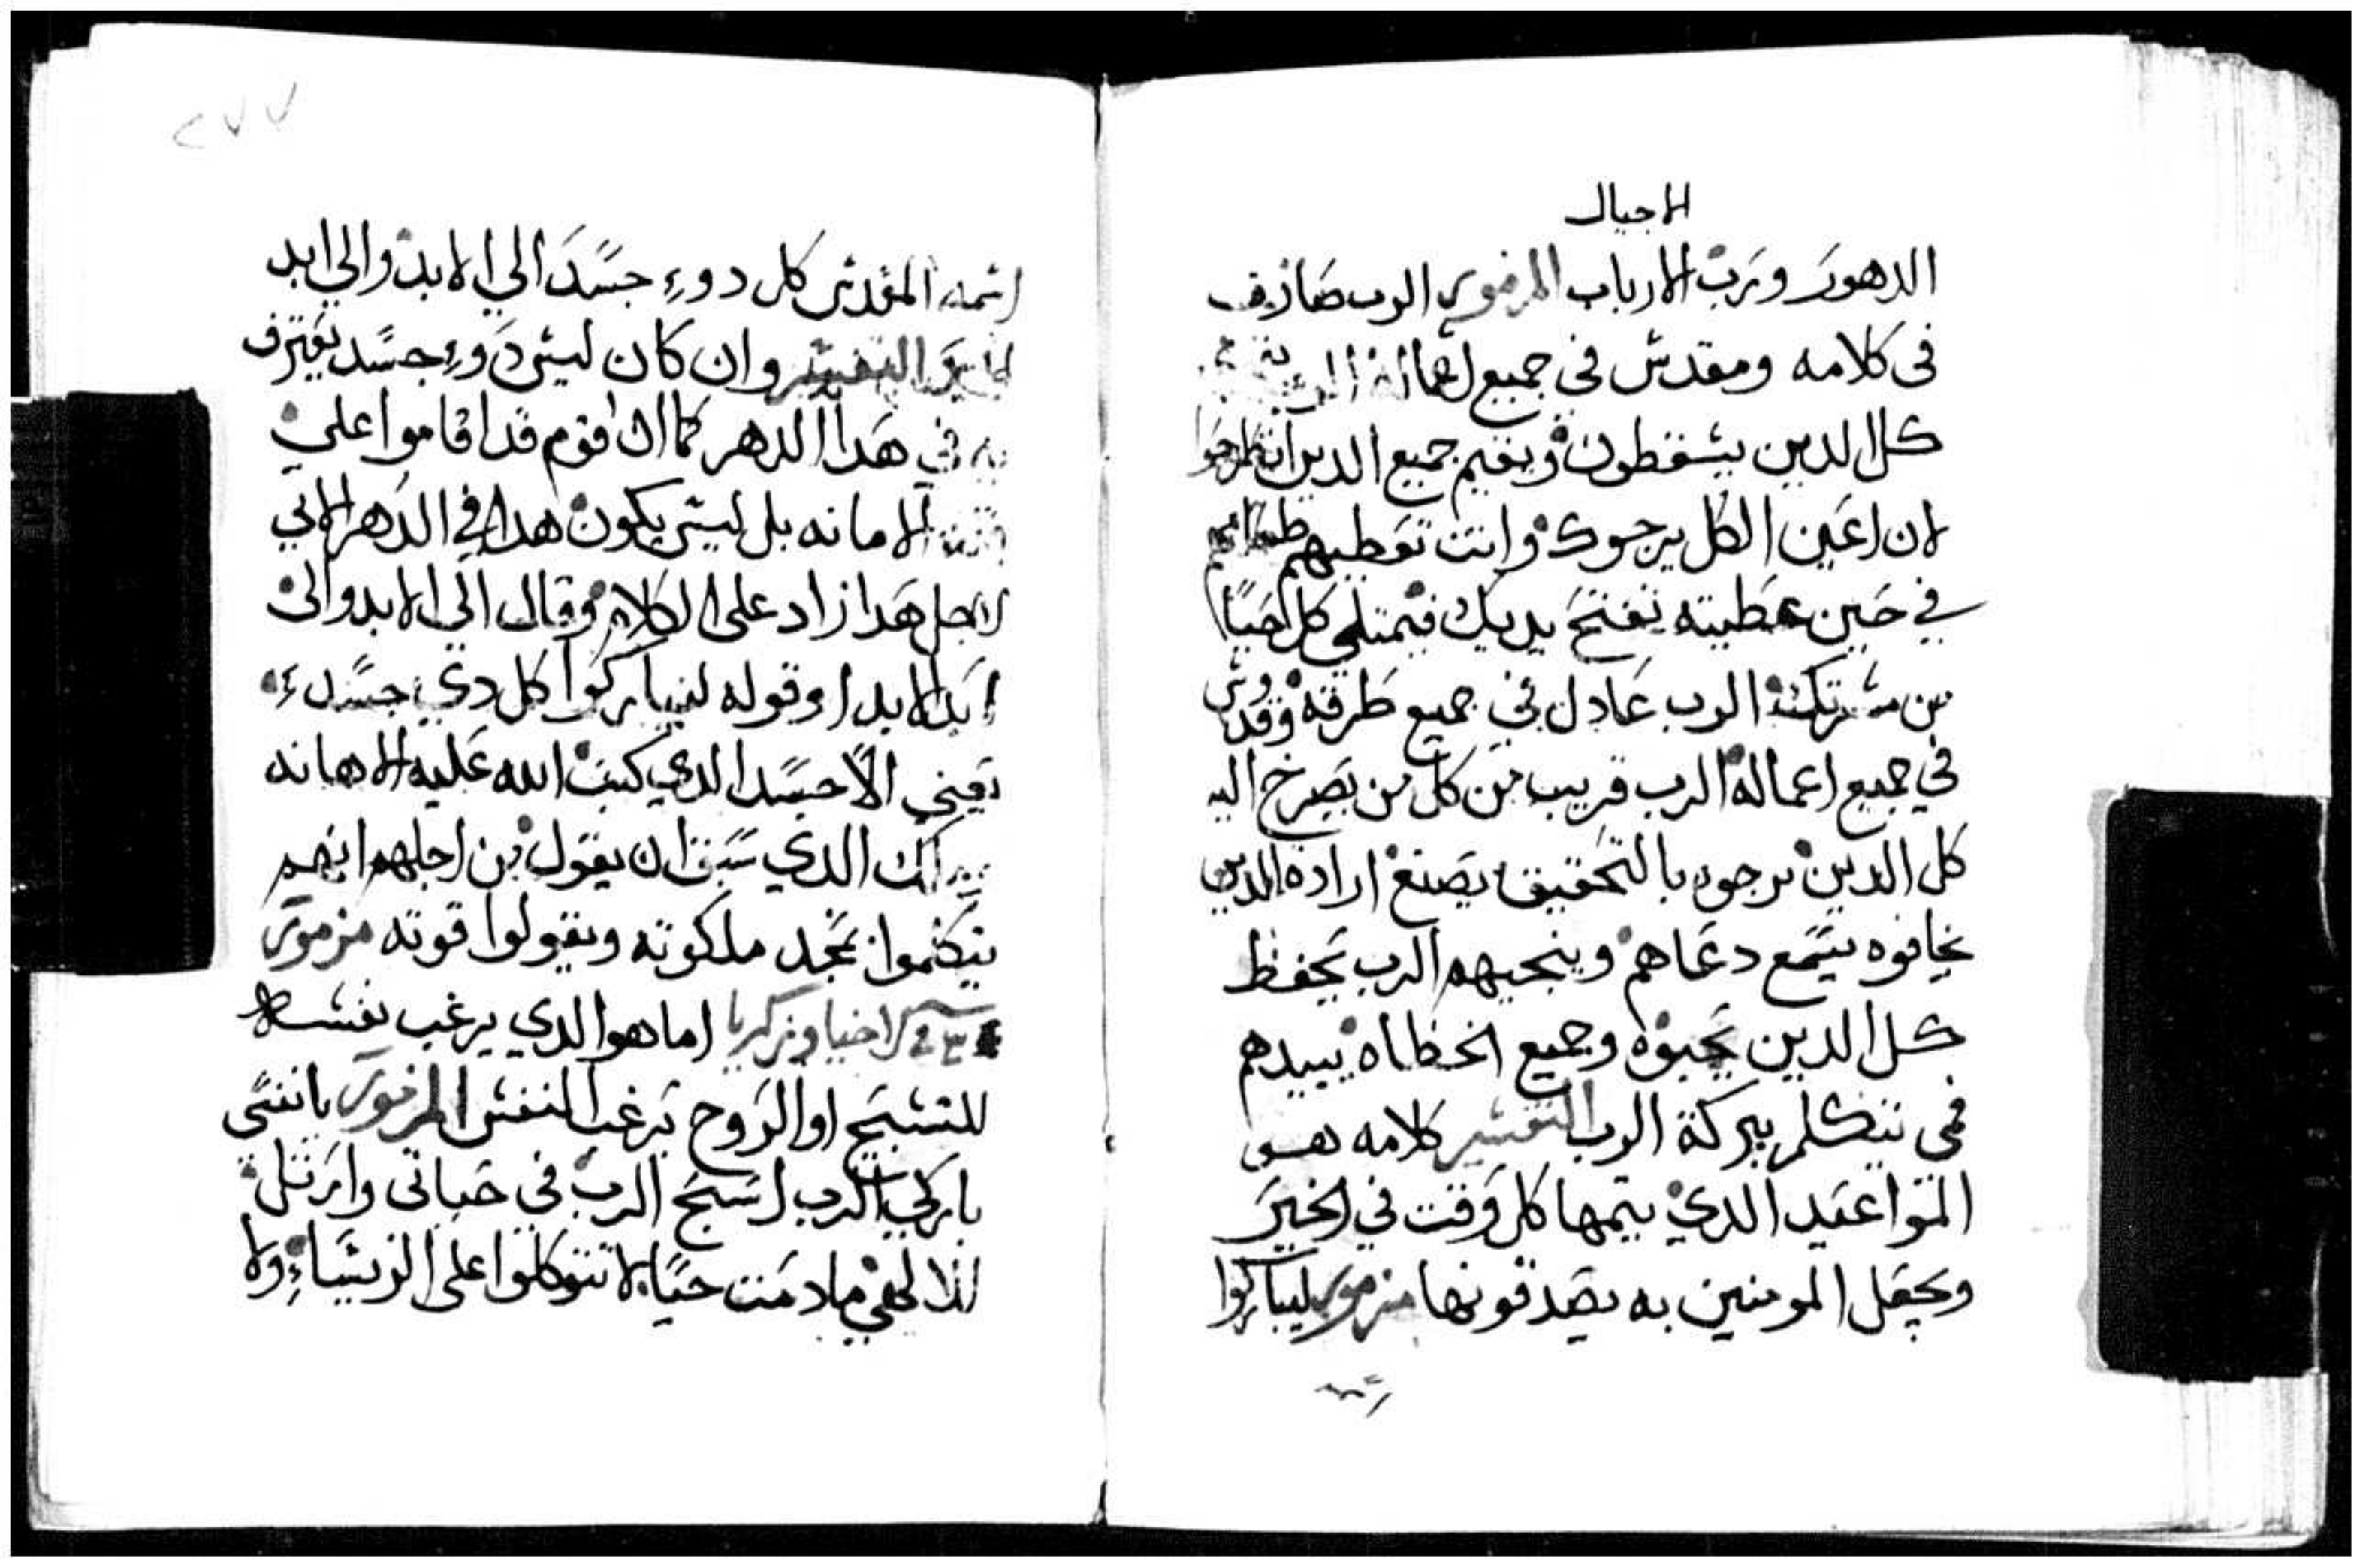 الاجيال
الدهور ورب الارباب المزمور الرب صادق
في كلامه ومقدس في جميع اعماله الرب
كل الدين يسقطون ويقيم جميع الدين انطرحوا
لان اعين الكل يرجوك وانت تعطيهم طعامهم
في حين عطيته تفتح يديك فيمتلي كل احيا
من مسرتك الرب عادل في جميع طرقه وقدوس
في جميع اعماله الرب قريب من كل من يصرخ اليه
كل الدين يرجوه بالتحقيق يصنع ارادة الدين
يخافوه يسمع دعاهم وينجيهم الرب يحفظ
كل الدين يحبوه وجميع الخطاه يبيدهم
فمي يتكلم ببركة الرب التفسير كلامه هو
المواعيد الدي يتمها كل وقت في الخير
ويجعل المومنين به يصدقونها مزمور ليباركوا
٢٧٧
اسمه المقدس كل دوي جسد الي الابد والي ابد
التفسير وان كان ليس دوي جسد يعترف
به في هدا الدهر كما ان قوم قد اقاموا علي
الامانه بل ليس يكون هدا في الدهر الاتي
لاجل هدا زاد على الكلام وقال الي الابد والي
ابد الابد وقوله ليباركوا كل دي جسد
يعني الاجسد الدي كتب الله عليه الاهانه
الدي سبق ان يقول من اجلهم انهم
يتكلموا بمجد ملكوته ويقولوا قوته مزمور
لاحيا وزكريا اما هو الدي يرغب نفسه
للتسبيح او الروح ترغب النفس المزمور يا نفسي
باركي الرب اسبح الرب في حياتي وارتل
لالهي مادمت حيا لا تتوكلوا على الريساء ولا